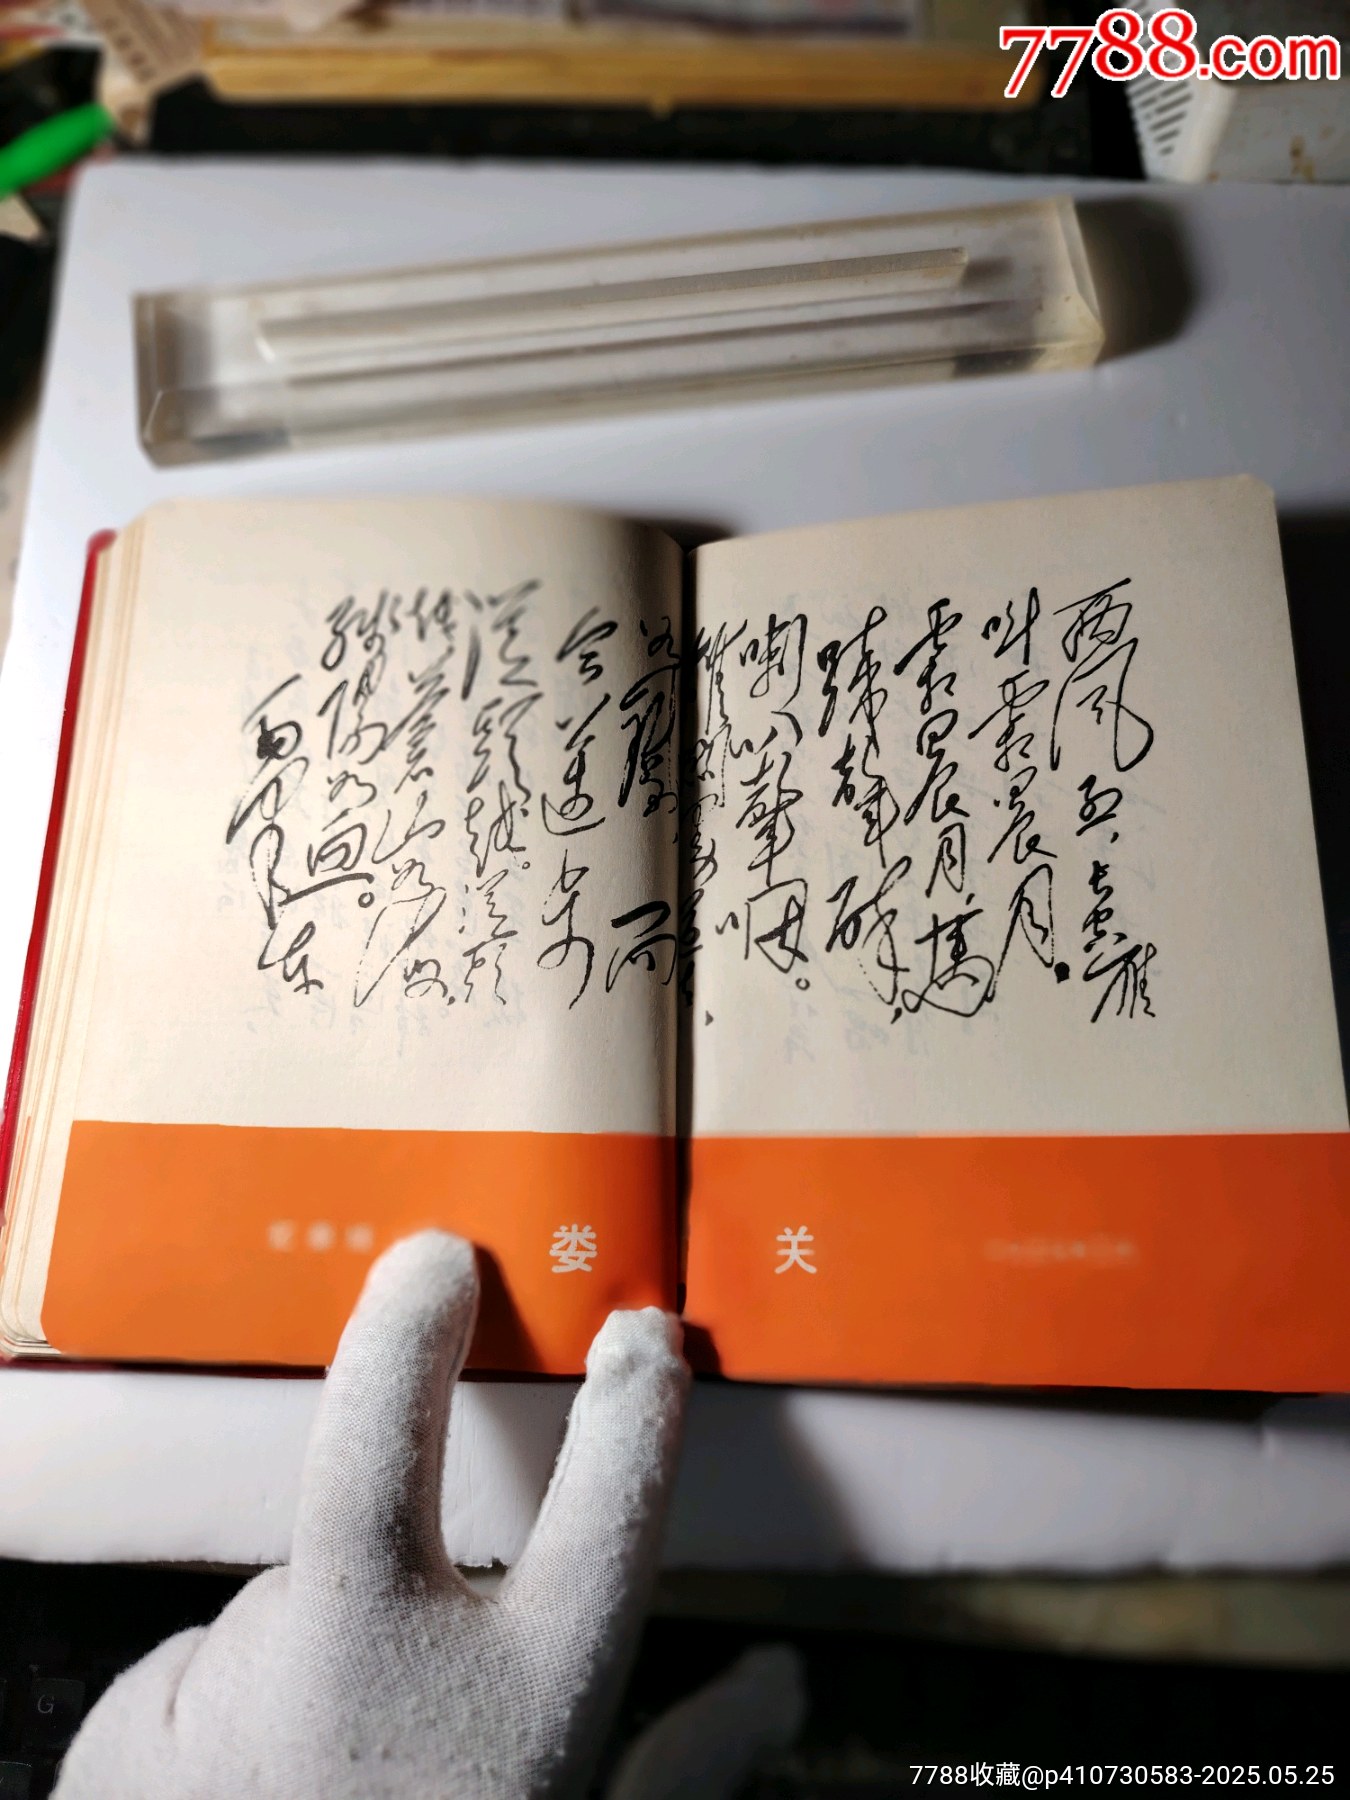 7788.com
西风烈,长空雁
叫霜晨月。
霜晨月,馬
蹄聲碎,
喇叭聲咽。
雄關漫道真
如鐵,而
今迈步
從頭越。從頭
越,苍山如海,
残陽如血。
毛泽东
娄 关
7788收藏@p410730583-2025.05.25